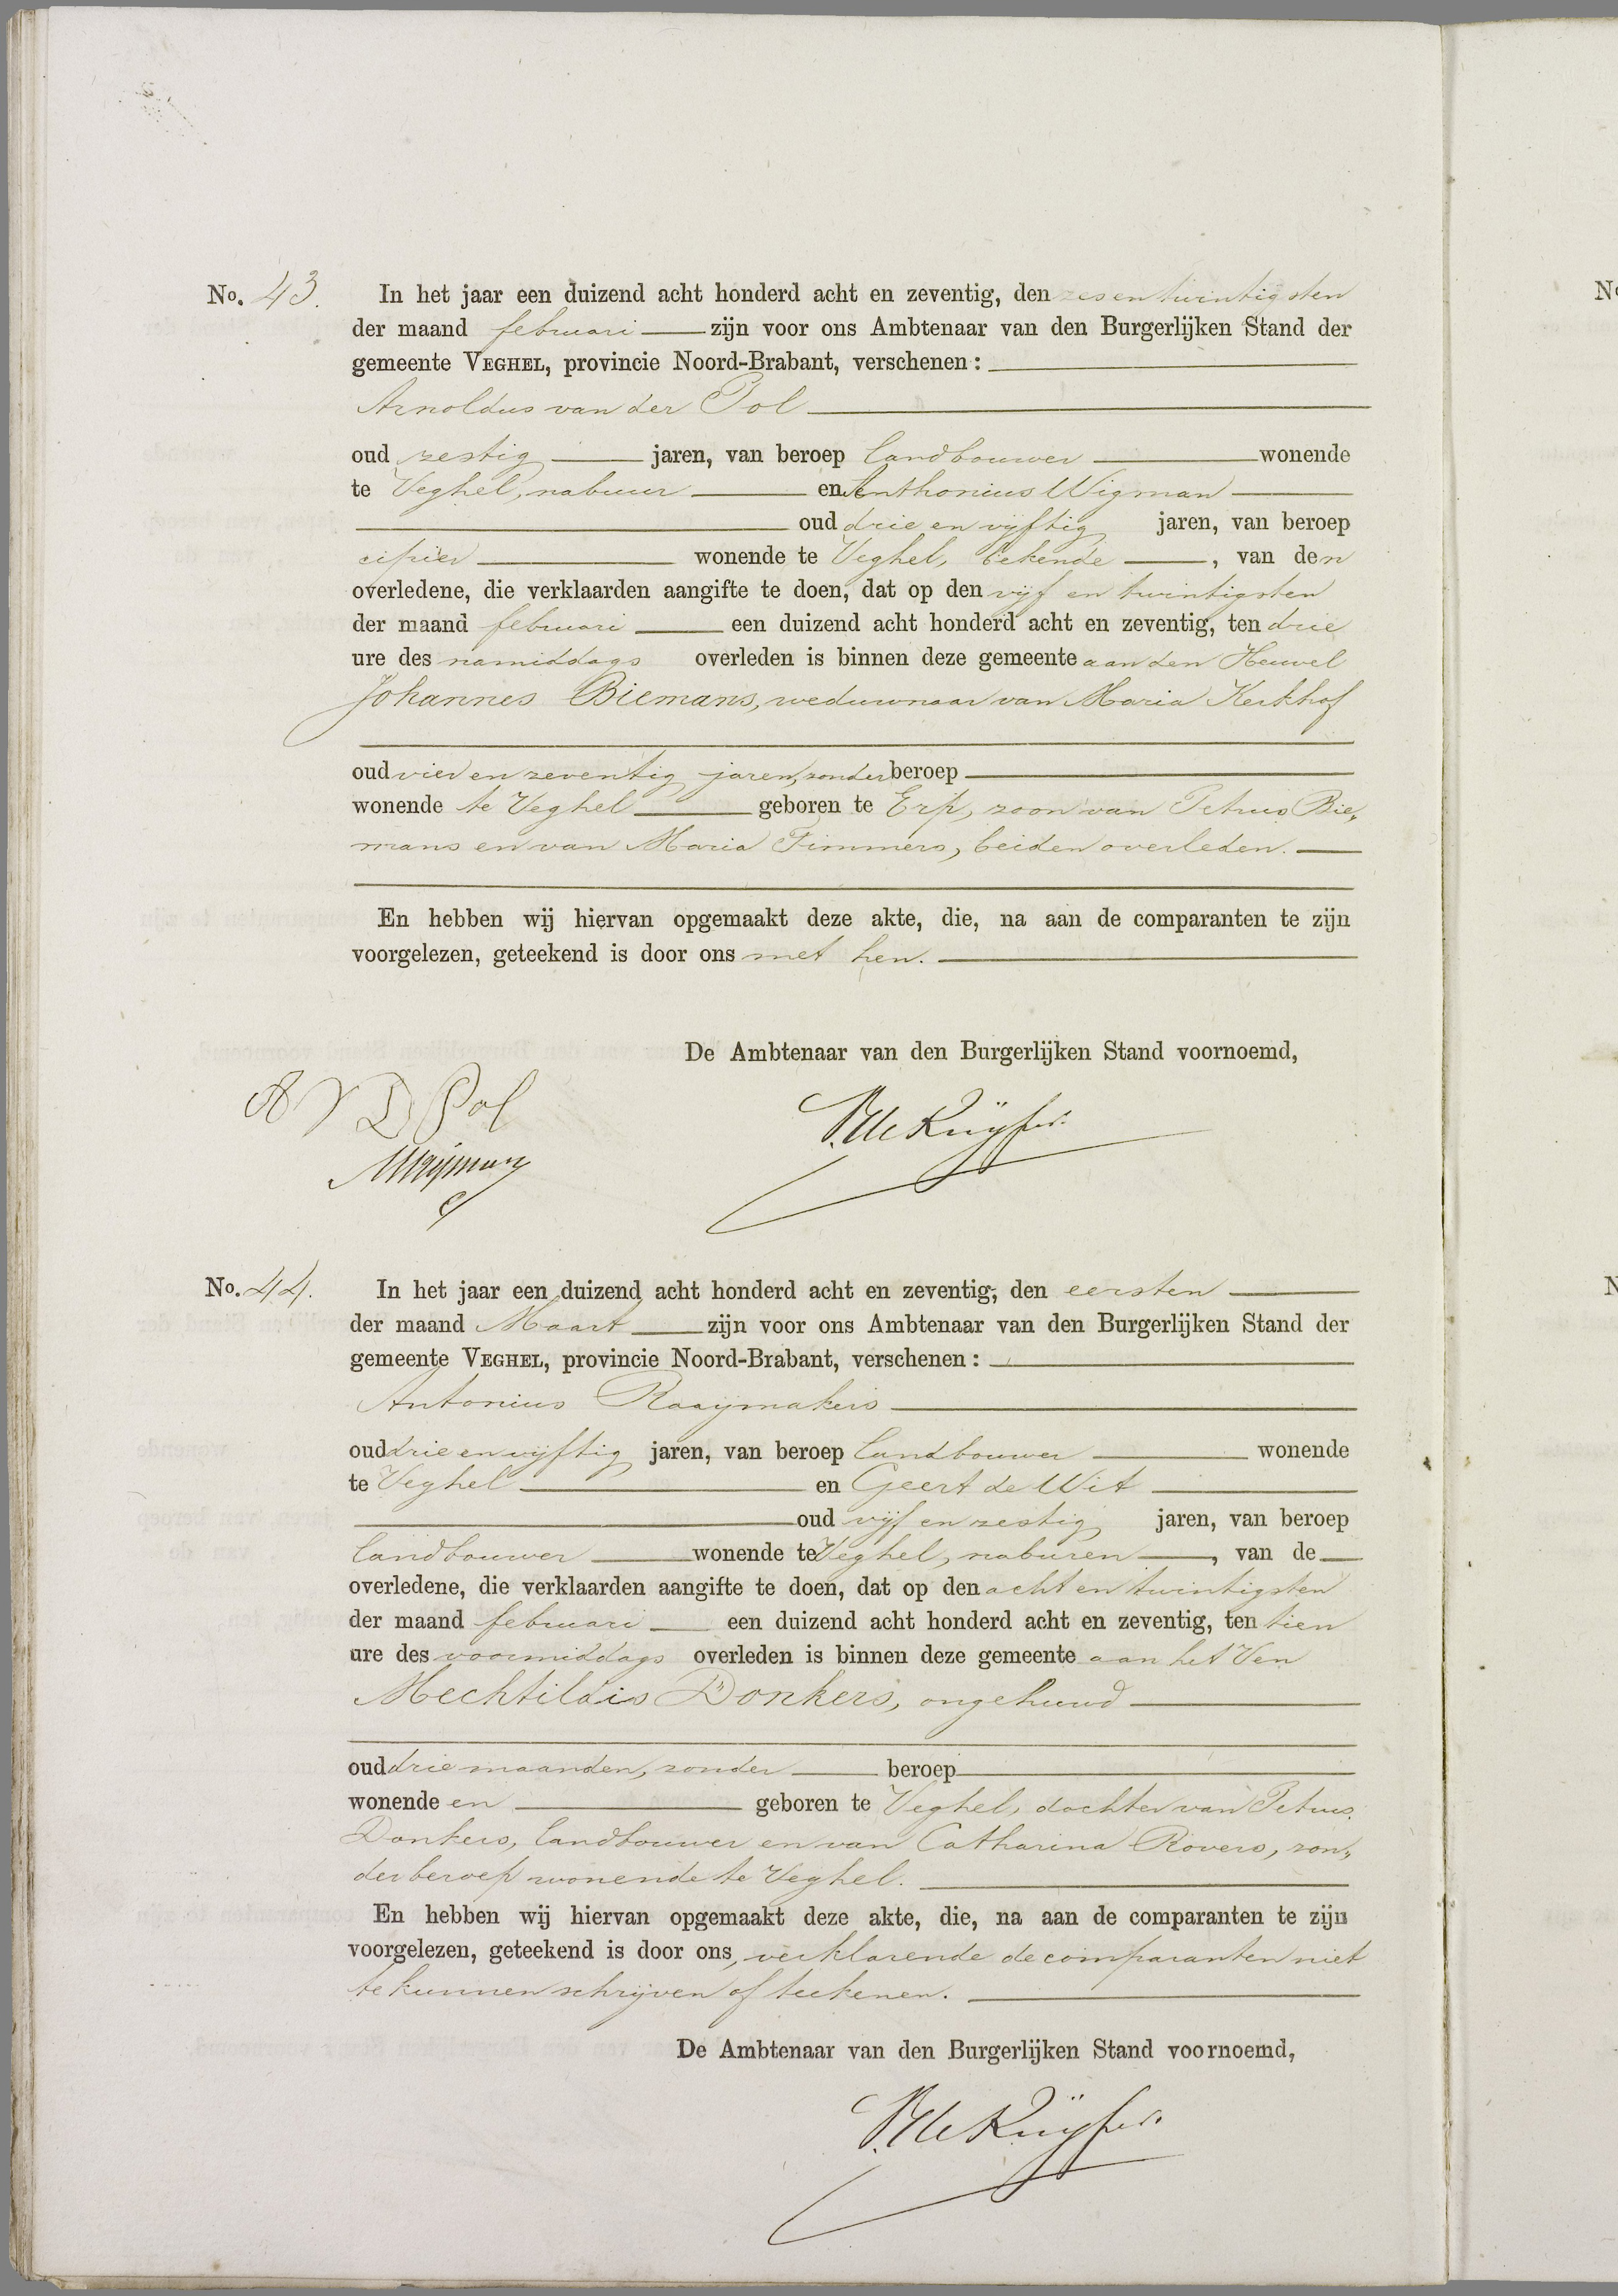 No. 43. In het jaar een duizend acht honderd acht en zeventig, den zes en twintigsten
der maand februari zijn voor ons Ambtenaar van den Burgerlijken Stand der
gemeente VEGHEL, provincie Noord-Brabant, verschenen:
Arnoldus van der Pol
oud zestig jaren, van beroep landbouwer wonende
te Veghel, nabuur en Anthonius Wigman
oud drie en vijftig jaren, van beroep
cipier wonende te Veghel, bekende, van den
overledene, die verklaarden aangifte te doen, dat op den vijf en twintigsten
der maand februari een duizend acht honderd acht en zeventig, ten drie
ure des namiddags overleden is binnen deze gemeente aan den Heuvel
Johannes Biemans, weduwnaar van Maria Kerkhof
oud vier en zeventig jaren, zonder beroep
wonende te Veghel geboren te Erp, zoon van Petrus Bie„
mans en van Maria Timmers, beiden overleden.
En hebben wij hiervan opgemaakt deze akte, die, na aan de comparanten te zijn
voorgelezen, geteekend is door ons met hen.
De Ambtenaar van den Burgerlijken Stand voornoemd,
A V D Pol
de Kuÿper
No. 44. In het jaar een duizend acht honderd acht en zeventig, den eersten
der maand Maart zijn voor ons Ambtenaar van den Burgerlijken Stand der
gemeente VEGHEL, provincie Noord-Brabant, verschenen:
Antonius Raaymakers
oud drie en vijftig jaren, van beroep landbouwer wonende
te Veghel en Geert de Wit
oud vijf en zestig jaren, van beroep
landbouwer wonende te Veghel, naburen, van de
overledene, die verklaarden aangifte te doen, dat op den acht en twintigsten
der maand februari een duizend acht honderd acht en zeventig, ten tien
ure des voormiddags overleden is binnen deze gemeente aan het Ven
Mechtildis Donkers, ongehuwd
oud drie maanden, zonder beroep
wonende en geboren te Veghel, dochter van Petrus
Donkers, landbouwer en van Catharina Rovers, zon„
der beroep wonende te Veghel.
En hebben wij hiervan opgemaakt deze akte, die, na aan de comparanten te zijn
voorgelezen, geteekend is door ons, verklarende de comparanten niet
te kunnen schrijven of teekenen.
De Ambtenaar van den Burgerlijken Stand voornoemd,
de Kuÿper